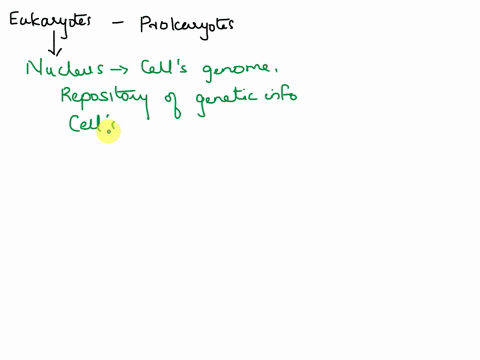 Eukaryotes - Prokaryotes
Nucleus → Cell's genome.
Repository of genetic info
Cell's